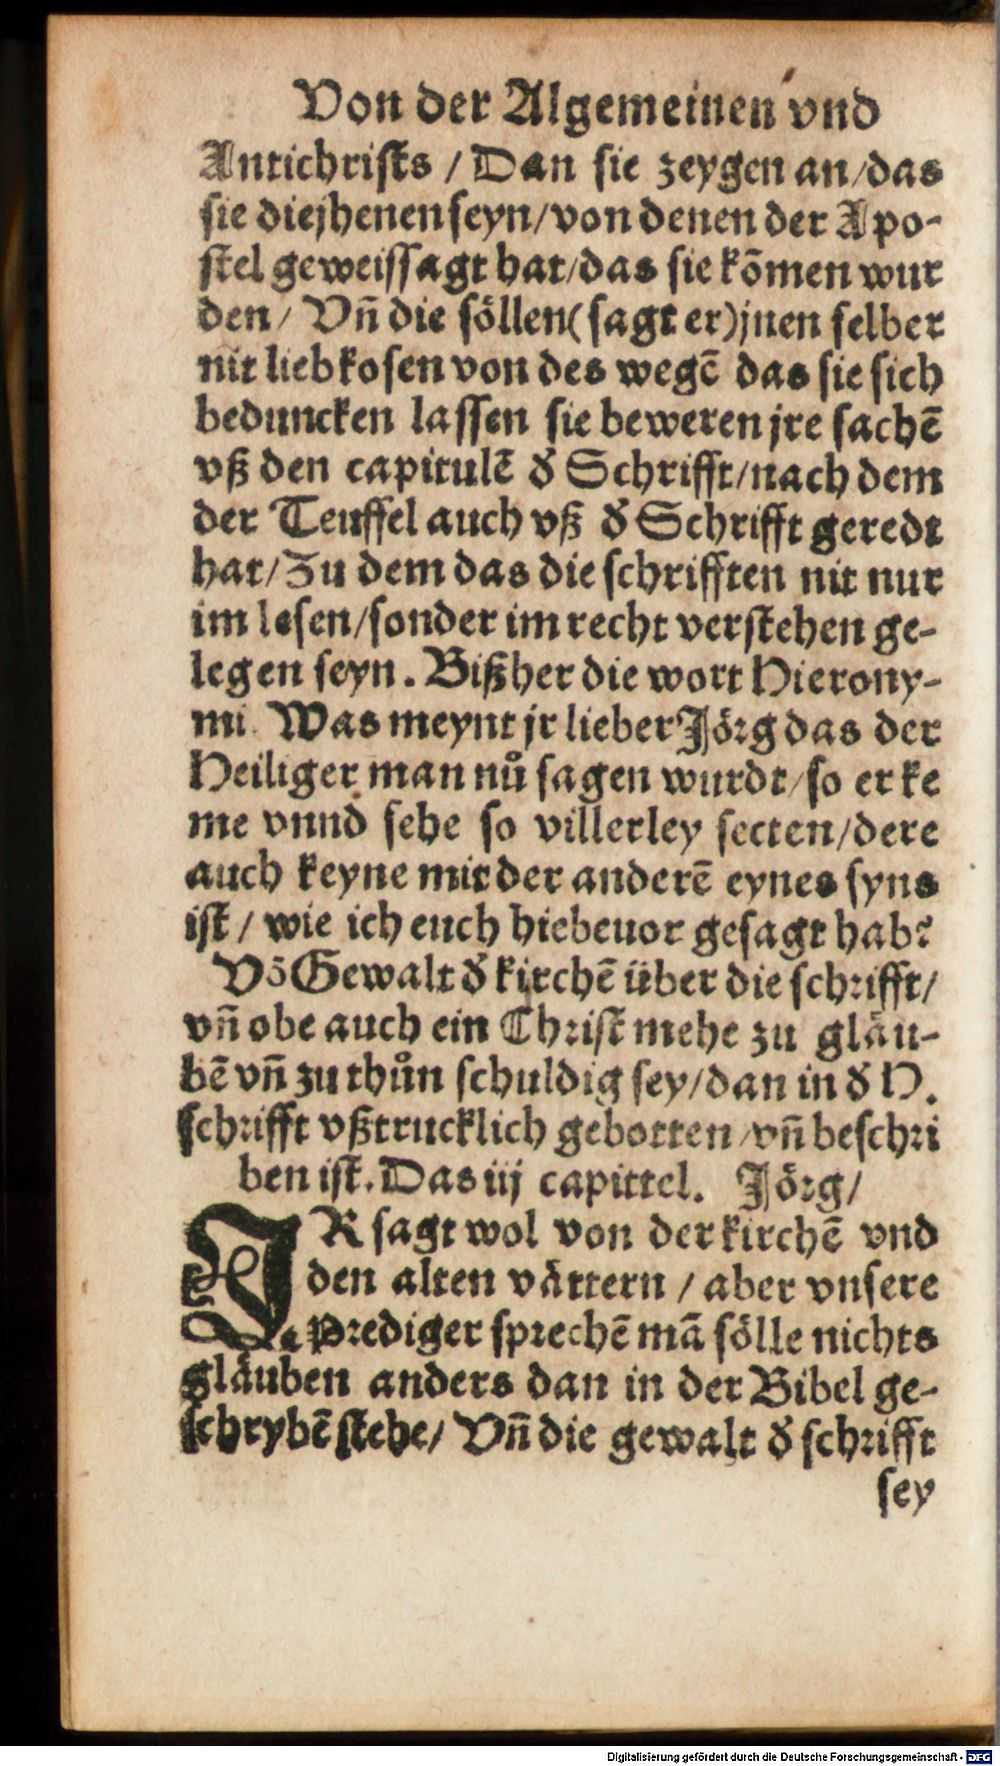 Von der Algemeinen vnd
Antichrists / Dan sie zeygen an/das
sie diejhenen seyn/von denen der Apo-
stel geweissagt hat/das sie kõmen wur
den/ Vñ die söllen(sagt er)jnen selber
nit liebkosen von des wegẽ das sie sich
beduncken lassen sie beweren jre sachẽ
vß den capitulẽ đ Schrifft/nach dem
der Teuffel auch vß đ Schrifft geredt
hat/Zu dem das die schrifften nit nur
im lesen/sonder im recht verstehen ge-
legen seyn. Bißher die wort Hierony-
mi. Was meynt jr lieber Jörg das der
Heiliger man nů sagen wurdt/so er ke
me vnnd sehe so villerley secten/dere
auch keyne mit der anderẽ eynes syns
ist / wie ich euch hiebeuor gesagt hab?
Võ Gewalt đ kirchẽ über die schrifft/
vñ obe auch ein Christ mehe zu gläu-
bẽ vñ zu thůn schuldig sey/dan in đ H.
schrifft vßtrucklich gebotten/vñ beschri
ben ist. Das iij capittel. Jörg/
IR sagt wol von der kirchẽ vnd
den alten vättern / aber vnsere
Prediger sprechẽ mã sölle nichts
gläuben anders dan in der Bibel ge-
schrybẽ stehe/ Vñ die gewalt đ schrifft
sey
Digitalisierung gefördert durch die Deutsche Forschungsgemeinschaft - DFG